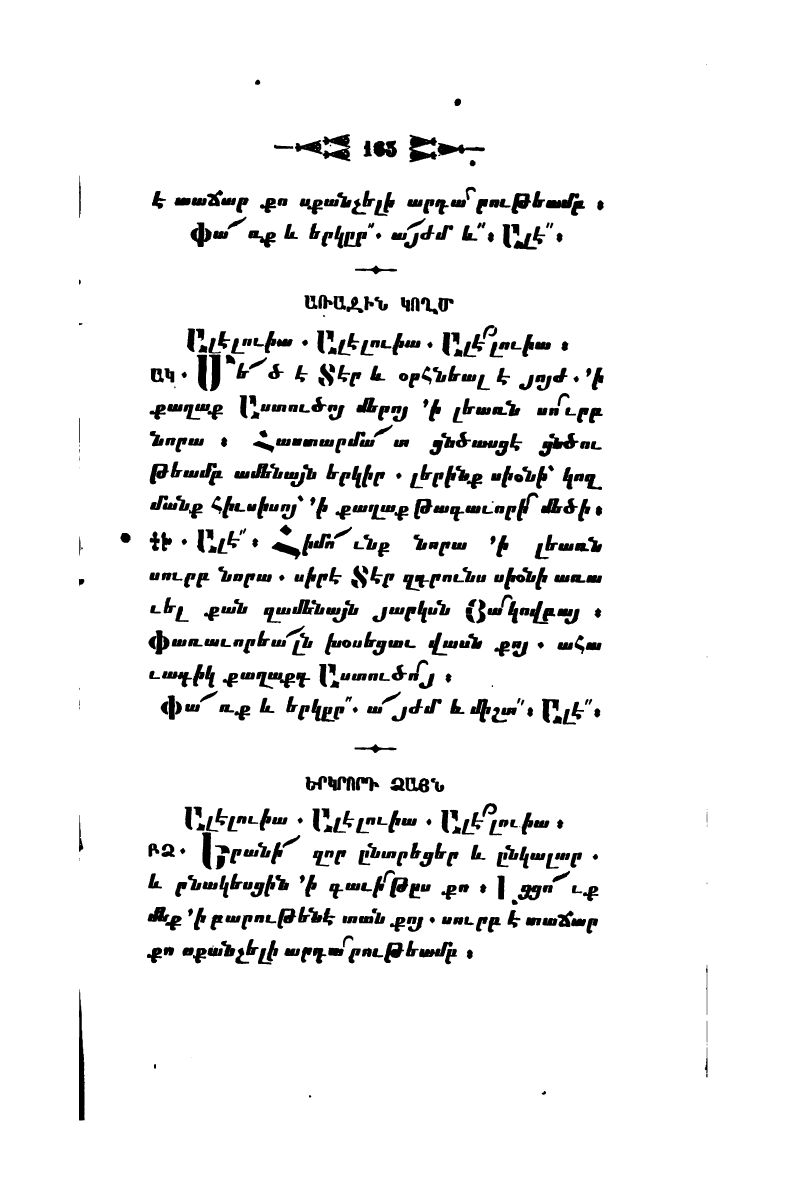 165
է տաճար քո սքանչելի արդա՜րութեամբ ։
Փա՜ռք և երկրը՞․ ա՜յժմ և՞։ Ալէ՞։
ԱՌԱՋԻՆ ԿՈՂՄ
Ալէլուիա ․ Ալէլուիա ․ Ալէ՜լուիա ։
ԱԿ․ Մե՜ծ է Տէր և օրհնեալ է յոյժ ․ ՚ի
քաղաք Աստուծոյ մերոյ ՚ի լեառն սո՜ւրբ
նորա ։ Հաստարմա՜տ ցնծասցէ ցնծու
թեամբ ամենայն երկիր ․ լերինք սիօնի՝ կող
մանք հիւսիսոյ՝ ՚ի քաղաք Թագաւորի՜ մեծի։
ԳԻ ․ Ալէ՞։ Հիմո՜ւնք նորա ՚ի լեառն
սուրբ նորա ․ սիրէ Տէր զդրունս սիօնի առա
ւել քան զամենայն յարկսն Յա՜կովբայ ։
Փառաւորեա՜լն խօսեցաւ վասն քոյ ․ ահա
ւադիկ քաղաքդ Աստուծո՜յ ։
Փա՜ռք և երկքր՞․ ա՜յժմ և միշտ՞։ Ալէ՞։
ԵՐԿՐՈՐԴ ՁԱՅՆ
Ալէլուիա ․ Ալէլուիա ․ Ալէ՜լուիա ։
ԲՁ․ Երանի՜ զոր ընտրեցեր և ընկալար ․
և բնակեսցին ՚ի գաւի՜թըս քո ։ Լցցո՜ւք
մեք ՚ի բարութենէ տան քոյ ․ սուրբ է տաճար
քո սքանչելի արդա՜րութեամբ ։